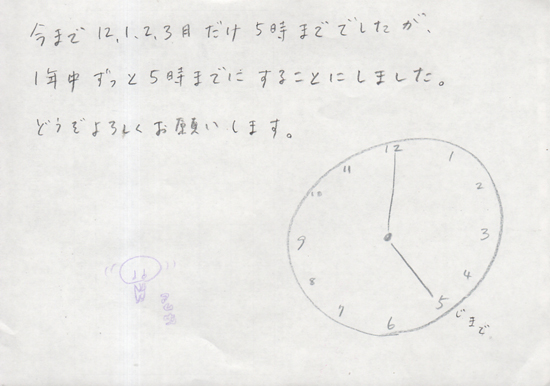 今まで 12,1,2,3月だけ 5時まででしたが、
1年中ずっと5時までにすることにしました。
どうぞよろしくお願いします。
12
1
2
3
4
5
じまで
6
7
8
9
10
11